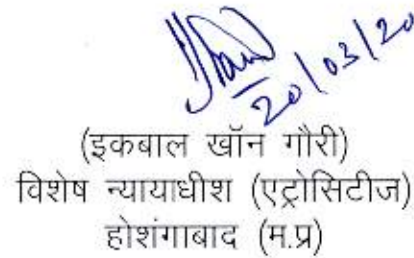 20/03/20
(इकबाल खॉन गौरी)
विशेष न्यायाधीश (एट्रोसिटीज)
होशंगाबाद (म.प्र)